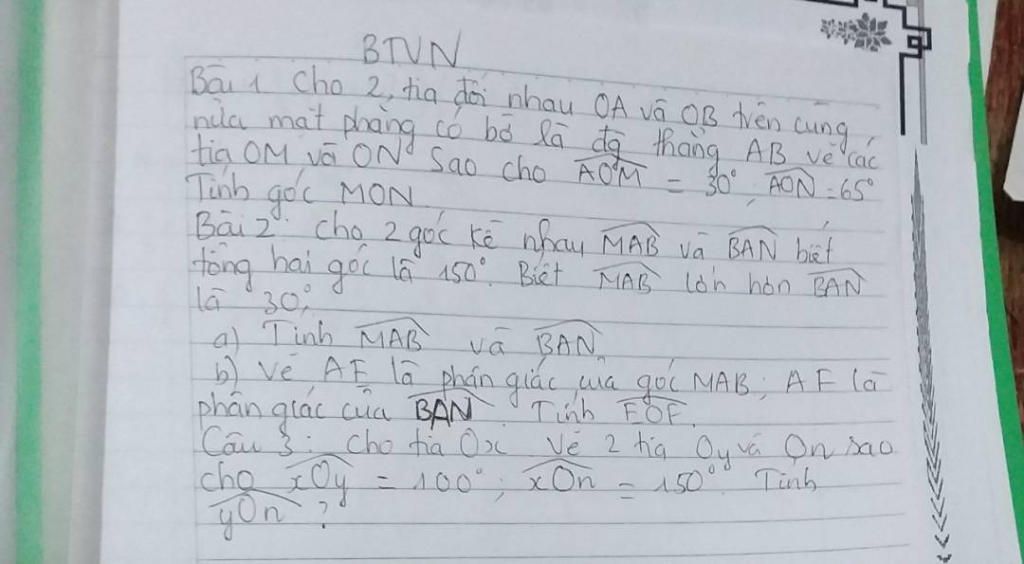 BTVN
Bài 1 Cho 2 tia đối nhau OA và OB trên cùng
nửa mặt phẳng có bờ là đg thẳng AB vẽ các
tia OM và ON sao cho AOM = 30°, AON = 65°
Tính góc MON
Bài 2: Cho 2 góc kề nhau MAB và BAN biết
tổng hai góc là 150°. Biết MAB lớn hơn BAN
là 30°.
a) Tính MAB và BAN
b) Vẽ AE là phân giác của góc MAB; AF là
phân giác của BAN. Tính EOF.
Câu 3: Cho tia Ox Vẽ 2 tia Oy và On sao
cho xOy = 100°; xOn = 150°. Tính
yOn ?